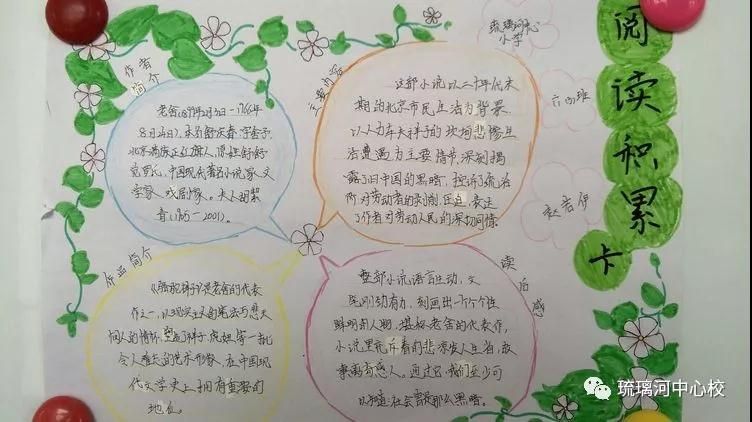 阅读积累卡
琉璃河中心
小学
六四班
赵若伊
作者
简介
老舍(1899年2月3日—1966年
8月24日)，本名舒庆春，字舍予，
北京满族正红旗人，原姓舒舒
觉罗氏，中国现代著名小说家、文
学家、戏剧家。夫人胡絜
青(1905—2001)。
主要内容
这部小说以二十年代末
期的北京市民生活为背景
以人力车夫祥子的坎坷悲惨生
活遭遇为主要情节，深刻揭
露了旧中国的黑暗，控诉了统治
阶对劳动者的剥削、压迫，表达
了作者对劳动人民的深切同情
作品简介
《骆驼祥子》是老舍的代表
作之一，以现实主义的笔法与悲天
悯人的情怀，塑造了祥子、虎妞等一批
令人难忘的艺术形象，在中国现
代文学史上拥有重要的
地位。
读后感
整部小说语言生动，文
笔刚劲有力，刻画出一个个个性
鲜明的人物，堪称老舍的代表作，
小说里充斥着的悲凉发人生省，故
事震撼感人。通过它，我们至少可
以知道社会曾是那么黑暗。
琉璃河中心校